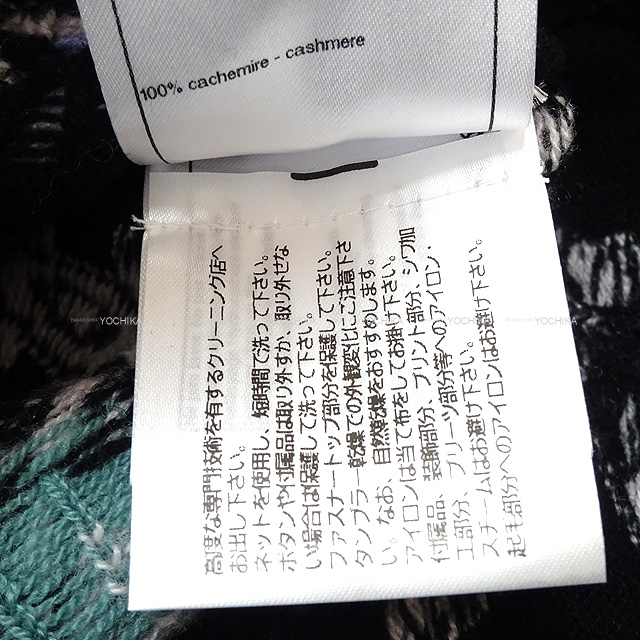 100% cachemire - cashmere
高度な専門技術を有するクリーニング店へ
お出し下さい。
ネットを使用し、短時間で洗って下さい。
ボタンや付属品は取り外すか、取り外せな
い場合は保護して洗って下さい。
ファスナートップ部分を保護して下さい。
タンブラー乾燥での外観変化にご注意下さ
い。なお、自然乾燥をおすすめします。
アイロンは当て布をしてお掛け下さい。
付属品、装飾部分、プリント部分、シワ加
工部分、プリーツ部分等へのアイロン・
スチームはお避け下さい。
起毛部分へのアイロンはお避け下さい。
YOCHIKA
YOCHIKA
YOCHIKA
YOCHIKA